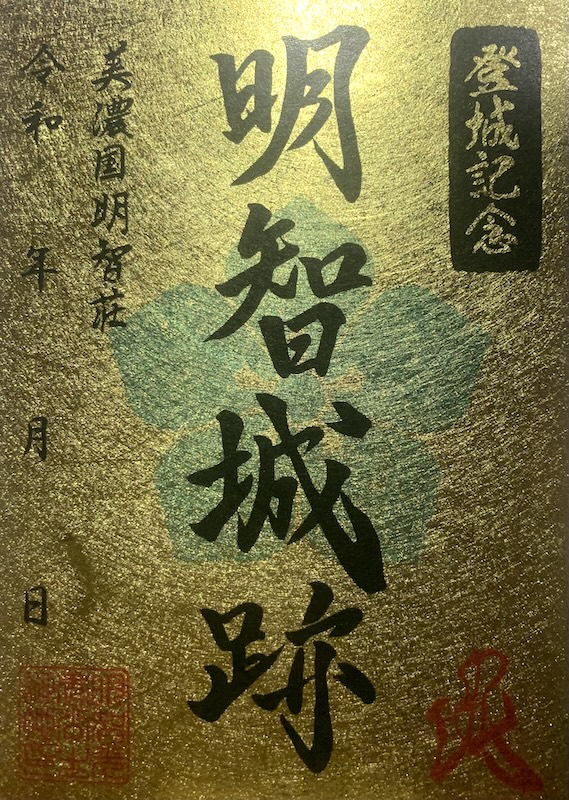 登城記念
明智城跡
美濃国明智荘
令和 年 月 日